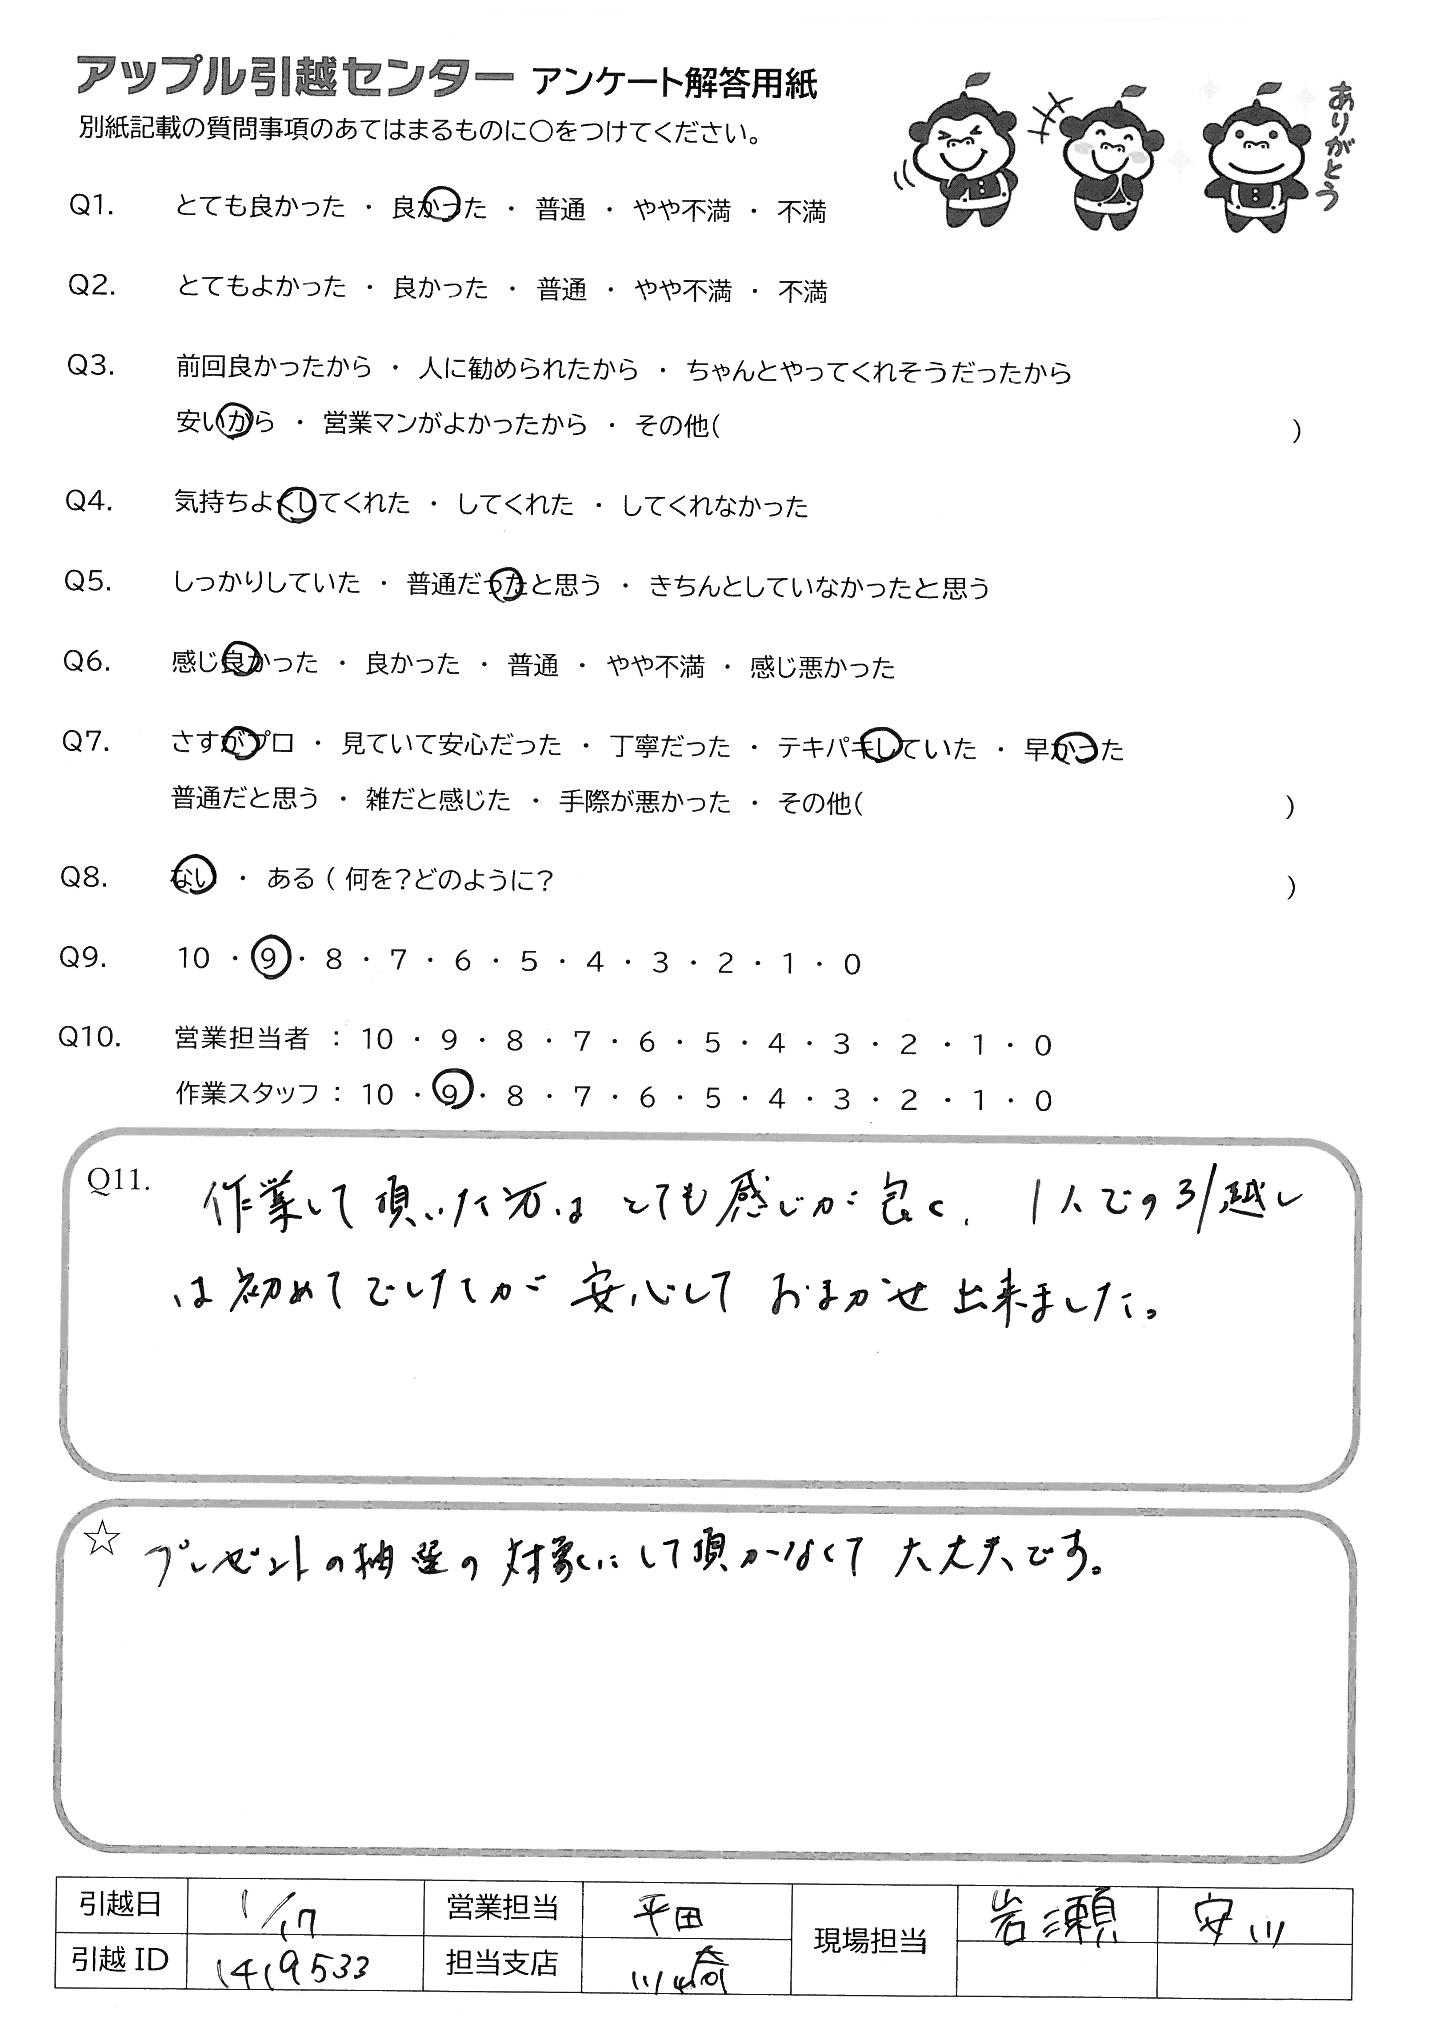 アップル引越センター アンケート解答用紙
別紙記載の質問事項のあてはまるものに〇をつけてください。
ありがとう
Q1. とても良かった ・ 良かった ・ 普通 ・ やや不満 ・ 不満
Q2. とてもよかった ・ 良かった ・ 普通 ・ やや不満 ・ 不満
Q3. 前回良かったから ・ 人に勧められたから ・ ちゃんとやってくれそうだったから
安いから ・ 営業マンがよかったから ・ その他( )
Q4. 気持ちよくしてくれた ・ してくれた ・ してくれなかった
Q5. しっかりしていた ・ 普通だったと思う ・ きちんとしていなかったと思う
Q6. 感じ良かった ・ 良かった ・ 普通 ・ やや不満 ・ 感じ悪かった
Q7. さすがプロ ・ 見ていて安心だった ・ 丁寧だった ・ テキパキしていた ・ 早かった
普通だと思う ・ 雑だと感じた ・ 手際が悪かった ・ その他( )
Q8. ない ・ ある ( 何を?どのように? )
Q9. 10 ・ 9 ・ 8 ・ 7 ・ 6 ・ 5 ・ 4 ・ 3 ・ 2 ・ 1 ・ 0
Q10. 営業担当者 : 10 ・ 9 ・ 8 ・ 7 ・ 6 ・ 5 ・ 4 ・ 3 ・ 2 ・ 1 ・ 0
作業スタッフ : 10 ・ 9 ・ 8 ・ 7 ・ 6 ・ 5 ・ 4 ・ 3 ・ 2 ・ 1 ・ 0
Q11. 作業して頂いた方は とても感じが良く、1人での引越し
は初めてでしたが 安心して おまかせ出来ました。
☆ プレゼントの抽選の対象にして頂かなくて大丈夫です。
引越日 1/17 営業担当 平田 現場担当 岩瀬 安川
引越ID 1419533 担当支店 川崎